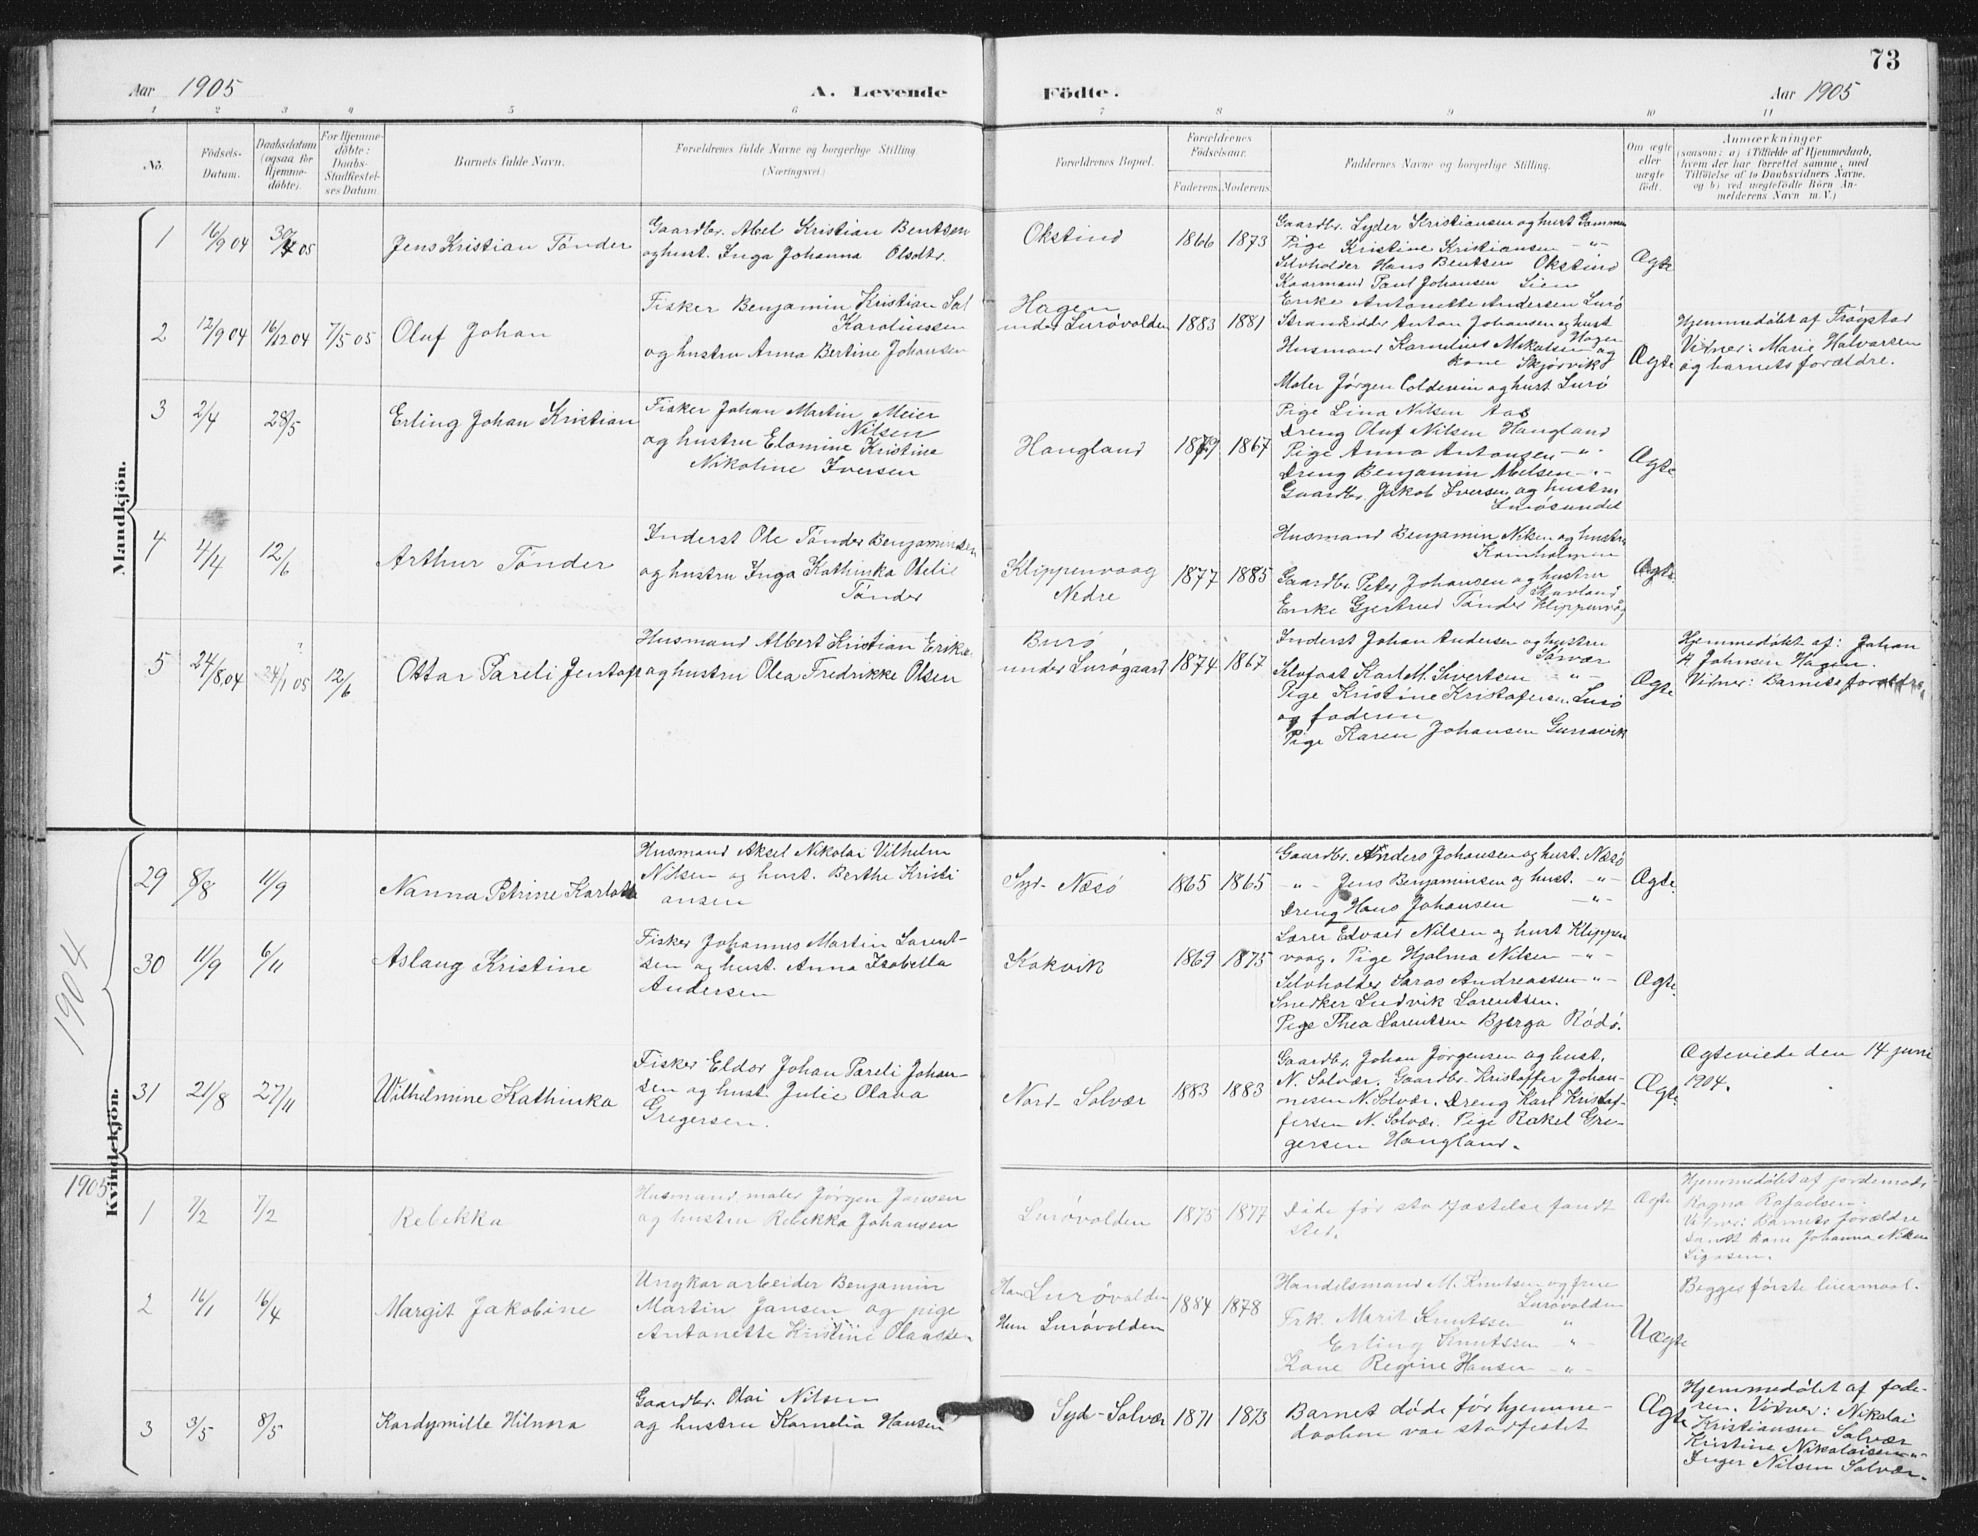 73
Aar 1905
A. Levende Födte.
Aar 1905
1 2 3 4 5 6 7 8 9 10 11
No.
Födsels-Datum.
Daabsdatum (ogsaa for Hjemme-döbte).
For Hjemme-döbte: Daabs-Stadfæstel-ses Datum.
Barnets fulde Navn.
Forældrenes fulde Navne og borgerlige Stilling (Næringsvei.)
Forældrenes Bopæl.
Forældrenes Födselsaar.
Faderens. Moderens.
Faddernes Navne og borgerlige Stilling.
Om ægte eller uægte födt.
Anmærkninger
(saasom: a) i Tilfælde af Hjemmedaab,
hvem der har forrettet samme, med
Tilföielse af to Daabsvidners Navne,
og b) ved uægtefödte Börn An-
melderens Navn m. V.)
Mandkjön.
1 16/9 04 05 Jens Kristian Tønder
Gaardbr. Abel Kristian Bentsen
og hust. Inga Johanna Olsdtr.
Okstind 1866 1873
Gaardbr. Lyder Kristiansen og hust Gammen
Pige Kristine Kristiansen -"-
Selvholder Hans Bentsen Okstind
Kaarmand Paul Johansen Lien
Ægte
2 12/9 04 16/12 04 7/5 05 Oluf Johan
Fisker Benjamin Kristian Sal
Karolinssen
og hustru Anna Bertine Johansen
Hagen
under Lurøvolden 1883 1881
Enke Antonette Andersen Lurø
Strandsidder Anton Johansen og hust
Hagen
Husmand Kornelius Mikalsen og
kone Skjørvik
Maler Jørgen Coldevin og hust Lurø
Ægte
Hjemmedøbt af Trøgstad
Vidner: Marie Halvarsen
og barnets forældre.
3 2/4 28/5 Erling Johan Kristian
Fisker Johan Martin Meier
Nilsen
og hustru Elomine Kristine
Nikoline Iversen
Haugland 1879 1867
Pige Lina Nilsen Aas
Dreng Oluf Nilsen Haugland
Pige Anna Antonsen -"-
Dreng Benjamin Abelsen -"-
Gaardbr. Jakob Iversen og hustru
Lurøsundet
Ægte
4 4/4 12/6 Arthur Tønder
Inderst Ole Tønder Benjaminsen
og hustru Inga Kathinka Otelie
Tønder
Klippenvaag
Nedre 1877 1885
Husmand Benjamin Nilsen og hustru
Kornholmen
Gaardbr. Peter Johansen og hustru
Stavland
Enke Gjertrud Tønder Klippenvåg
Ægte
5 24/8.04 24/1 05 12/6 Ottar Pareli Jentoft
Husmand Albert Kristian Eriks.
og hustru Olea Fredrikke Olsen
Burø
under Lurøgaard 1874 1867
Inderst Johan Andersen og hustru
Sørvær
Selvfost Karl M. Sivertsen -"-
Pige Kristine Kristofersen Lurø
og faderen
Pige Karen Johansen
Ægte
Hjemmedøbt af: Johan
A Johnsen Hagen.
Vidner: Barnets forældre
1904
Kvindekjön.
29 8/8 11/9 Nanna Petrine Karlotta
Husmand Aksel Nikolai Vilhelm
Nilsen og hust. Berthe Kristi
ansen
Syd- Næsø 1865 1865
Gaardbr. Anders Johansen og hust. Næsø
-"- Jens Benjaminsen og hust. -"-
Dreng Hans Johansen -"-
Ægte.
30 11/9 6/11 Aslaug Kristine
Fisker Johannes Martin Larent-
sen og hust. Anna Isabella
Andersen
Kokvik 1869 1875
Lærer Edvard Nilsen og hust Klippen
vaag. Pige Hjalma Nilsen -"-
Selvholder Laros Andreassen -"-
Snedker Ludvik Larentsen.
Pige Thea Larentsen Bjærga Rödö.
Ægte.
31 21/8 27/11 Wilhelmine Kathinka
Fisker Eldor Johan Pareli Johan-
sen og hust. Julie Olava
Gregersen.
Nord- Solvær 1883 1883
Gaardbr. Johan Jørgensen og hust.
N. Solvær. Gaardbr. Kristoffer Johan-
nesen N. Solvær. Dreng Karl Kristof-
fersen N. Solvær. Pige Rakel Gre-
gersen Haugland.
Ægte.
Ægteviede den 14 juni
1904.
1905
1 7/2 7/2 Rebekka
Husmand, maler Jørgen Jansen
og hustru Rebekka Johansen
Lurøvolden 1875 1877
Døde før stadfæstelse fandt
sted.
Ægte
Hjemmedøbt af jordemoder
Ragna Rafaelsen.
Vidner: Barnets forældre
samt kone Johanna Nilsen
2 16/1 16/4 Margit Jakobine
Ungkar arbeider Benjamin
Martin Jansen og pige
Antonette Kristine Olaussen
Han Lurøvolden
Hun Lurøvolden 1884 1878
Handelsmand M. Knutsen og frue
Lurøvolden
Frk. Marit Knutsen "
Erling Knutsen -"-
Kone Regine Hansen -"-
Uægte
Begges første leiermaal.
3 3/5 8/5 Kordymille Hilnora
Gaardbr. Olai Nilsen
og hustru Kornelia Hansen
Syd-Solvær 1871 1873
Barnet døde før hjemme-
daaben var stadfestet
Ægte
Hjemmedøbt af fade-
ren. Vidner: Nikolai
Kristiansen Solvær
Kristine Nikolaisen -"-
Inger Nilsen Solvær.